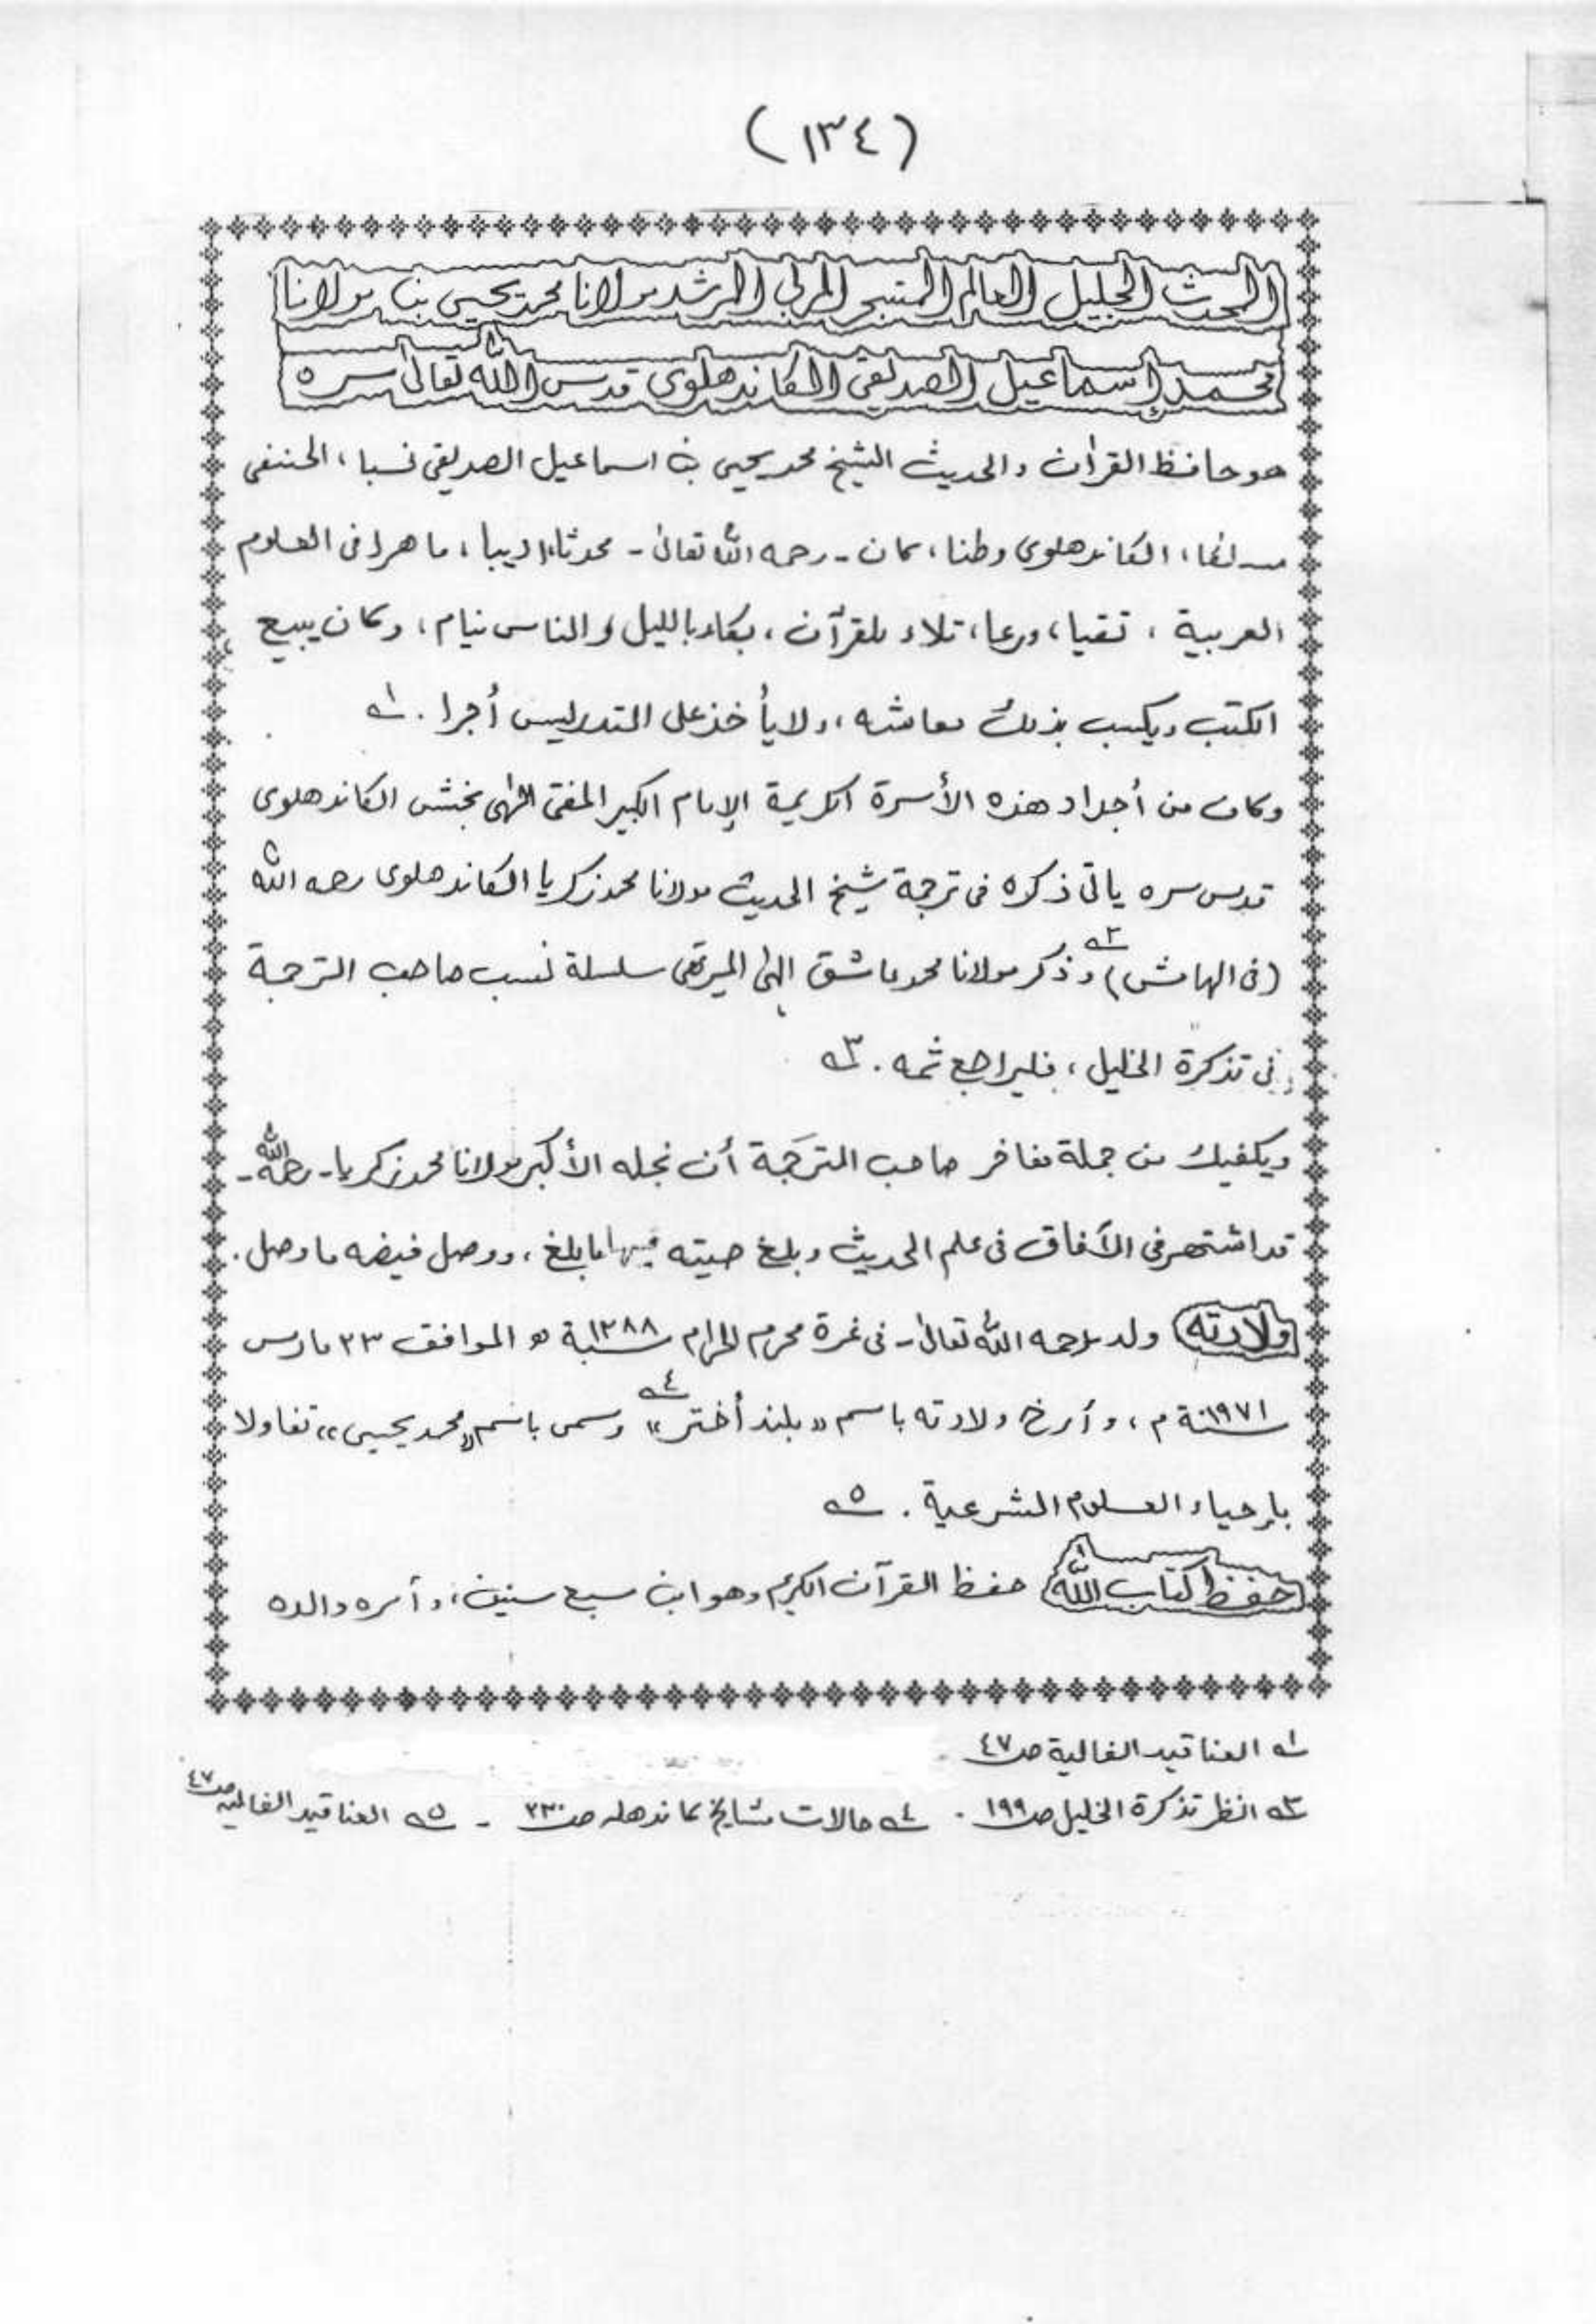 (١٣٤)
المحدث الجليل العالم المتبحر المربي المرشد مولانا محمد يحيى بن مولانا
محمد إسماعيل الصديقي الكاندهلوي قدس الله تعالى سره
هو حافظ القرآن والحديث الشيخ محمد يحيى بن اسماعيل الصديقي نسبا، الحنفي
مسلكا، الكاندهلوي وطنا، كان - رحمه الله تعالى - محدثا، اديبا، ماهرا في العلوم
العربية، تقيا، ورعا، تلاء للقرآن، بكاء بالليل والناس نيام، وكان يبيع
الكتب ويكسب بذلك معاشه، ولا يأخذ على التدريس أجرا. ١ـه
وكان من أجداد هذه الأسرة الكريمة الإمام الكبير المفتي إلهى بخش الكاندهلوي
قدس سره يأتي ذكره في ترجمة شيخ الحديث مولانا محمد زكريا الكاندهلوي رحمه الله
(في الهامش) ٢ـه وذكر مولانا محمد عاشق إلهى الميرتهي سلسلة نسب صاحب الترجمة
في تذكرة الخليل، فليراجع ثمه. ٣ـه
ويكفيك من جملة مفاخر صاحب الترجَمة أن نجله الأكبر مولانا محمد زكريا - رحمه الله -
قد اشتهر في الآفاق في علم الحديث وبلغ صيته فيها ما بلغ، ووصل فيضه ما وصل.
ولادته ولد - رحمه الله تعالى - في غرة محرم الحرام سنة ١٢٨٨ه الموافق ٢٣ مارس
سنة ١٩٧١م، وأرخ ولادته باسم "بلند أختر" ٤ـه وسمى باسم "محمد يحيى" تفاولا
بإحياء العلوم الشرعية. ٥ـه
حفظ كتاب الله حفظ القرآن الكريم وهو ابن سبع سنين، وأمره والده
١ـه العناقيد الغالية صـ٤٧
٣ـه انظر تذكرة الخليل صـ١٩٩. ٤ـه حالات مشايخ كاندهله صـ٢٣٠ - ٥ـه العناقيد الغالية صـ٤٧